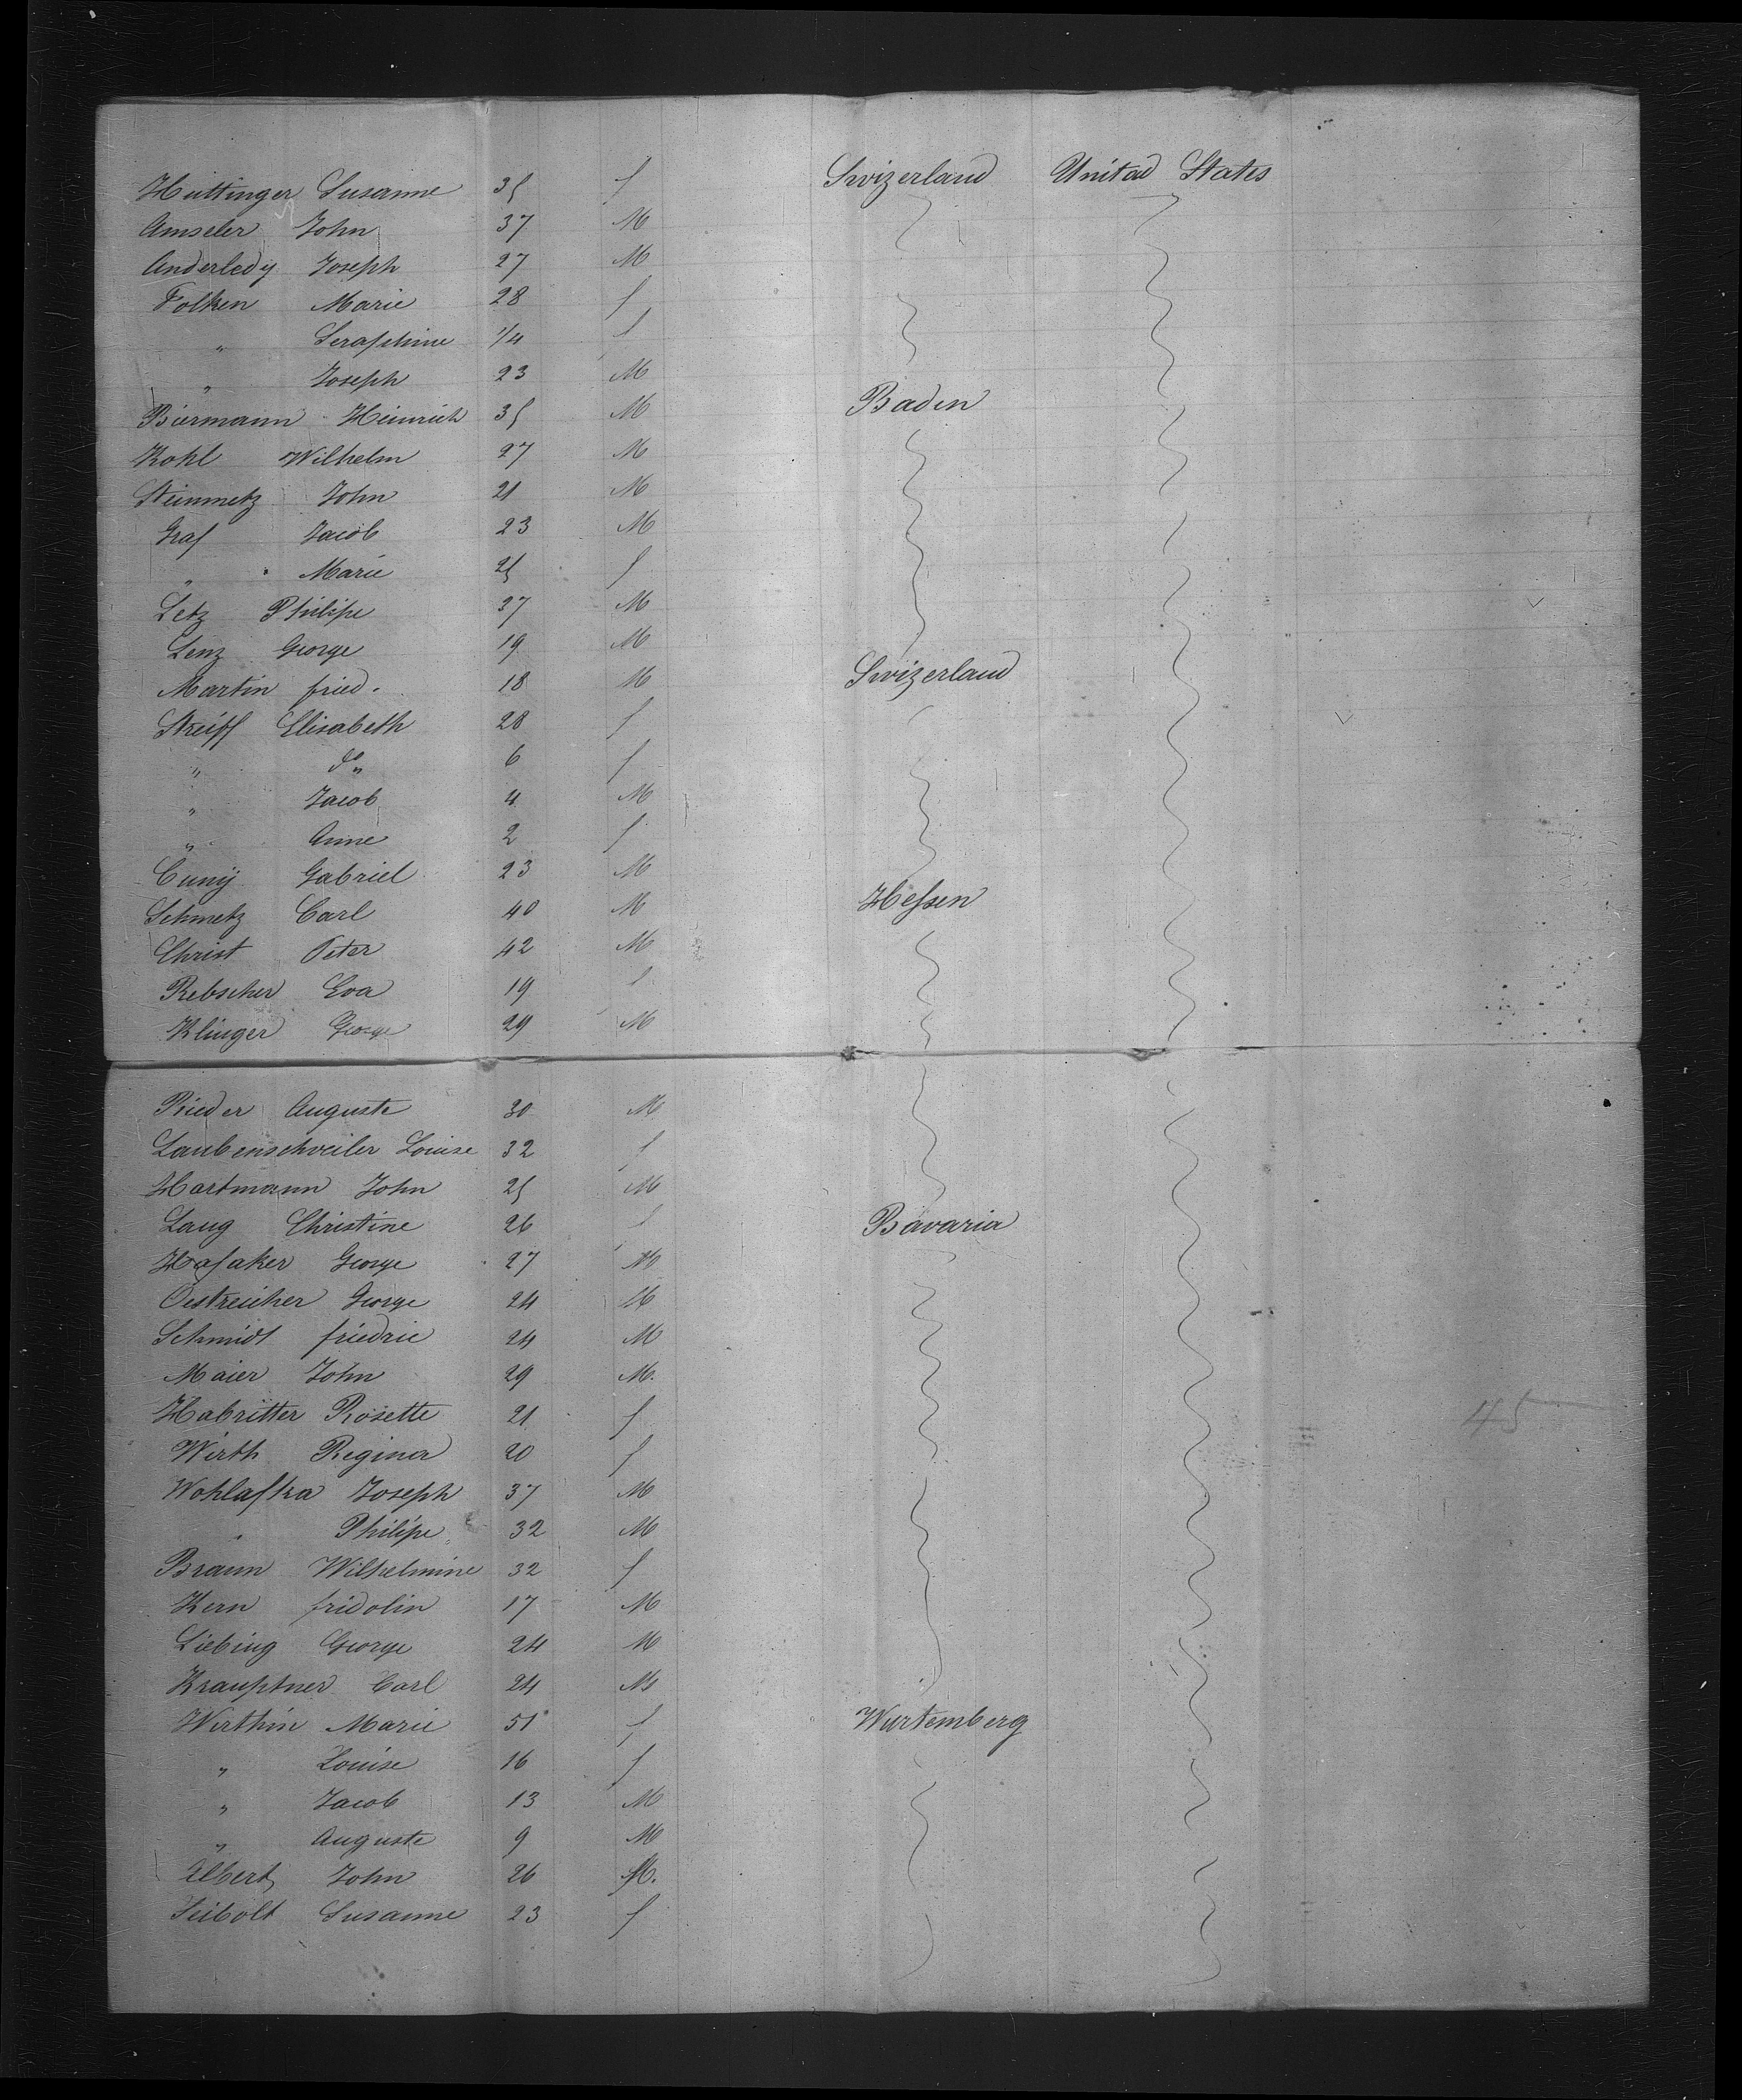 Huttinger Susanne 35 f Swizerland United States
Amseler John 37 M
Anderledy Joseph 27 M
Folken Marie 28 f
" Seraphine 1/4 f
" Joseph 23 M
Biermann Heinrich 35 M Baden
Kohl Wilhelm 27 M
Steinmetz John 21 M
Graf Jacob 23 M
" Marie 25 f
Letz Philipe 37 M
Lenz George 19 M
Martin fried. 18 M Swizerland
Streiff Elisabeth 28 f
" do " 6 f
" Jacob 4 M
" Anne 2 f
Cuny Gabriel 23 M
Schmetz Carl 40 M Hessen
Christ Peter 42 M
Rebscher Eva 19 f
Klinger George 29 M
Rieder Auguste 30 M
Laubenschweiler Louise 32 f
Hartmann John 25 M
Laug Christine 26 f Bavaria
Hafaker George 27 M
Oestreicher George 24 M
Schmidt friedric 24 M
Maier John 29 M.
Habritter Rosette 21 f
Wirth Regina 20 f
Wohlafka Joseph 37 M
" Philipe 32 M
Braun Wilhelmine 32 f
Kern fridolin 17 M
Liebing George 24 M
Krauptner Carl 24 M
Wirthin Marie 51 f Wurtemberg
" Louise 16 f
" Jacob 13 M
" Auguste 9 M
Albert John 26 M.
Seibolt Susanne 23 f
45